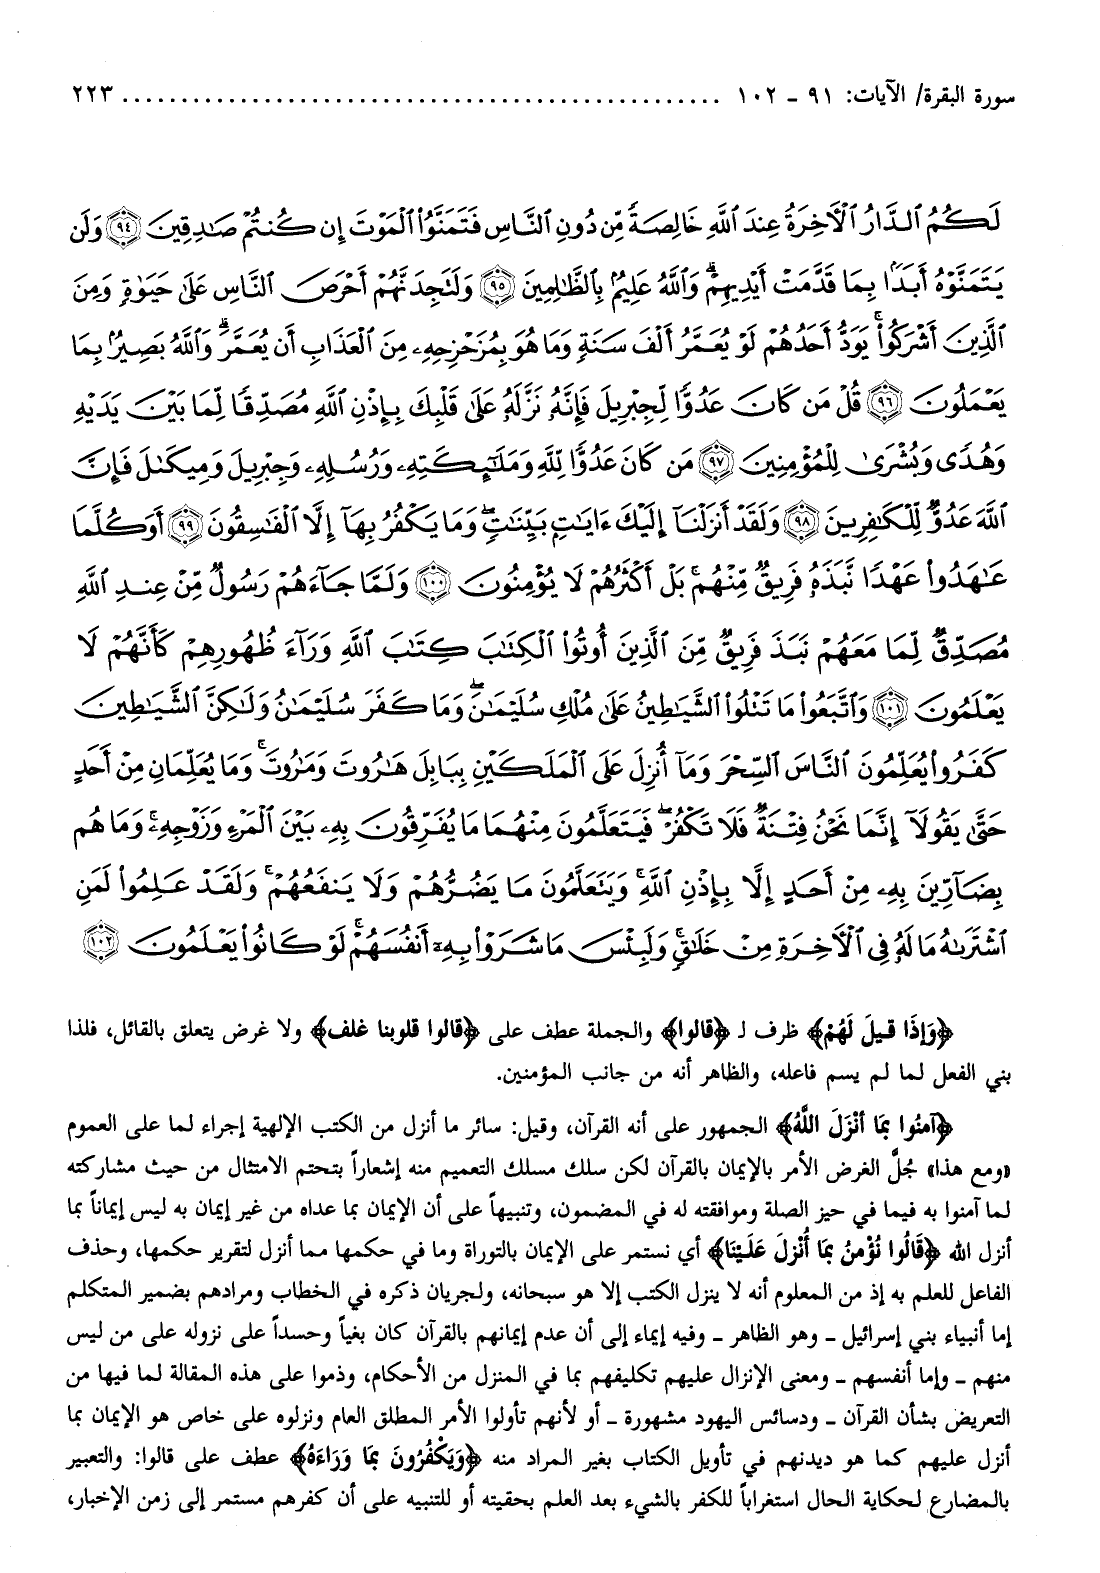 سورة البقرة/ الآيات: ٩١ - ١٠٢ ................................................. ٢٢٣
لَكُمُ الدَّارُ الْآخِرَةُ عِندَ اللَّهِ خَالِصَةً مِّن دُونِ النَّاسِ فَتَمَنَّوُا الْمَوْتَ إِن كُنتُمْ صَادِقِينَ ﴿٩٤﴾ وَلَن
يَتَمَنَّوْهُ أَبَدًا بِمَا قَدَّمَتْ أَيْدِيهِمْ ۗ وَاللَّهُ عَلِيمٌ بِالظَّالِمِينَ ﴿٩٥﴾ وَلَتَجِدَنَّهُمْ أَحْرَصَ النَّاسِ عَلَىٰ حَيَوٰةٍ وَمِنَ
الَّذِينَ أَشْرَكُوا ۚ يَوَدُّ أَحَدُهُمْ لَوْ يُعَمَّرُ أَلْفَ سَنَةٍ وَمَا هُوَ بِمُزَحْزِحِهِۦ مِنَ الْعَذَابِ أَن يُعَمَّرَ ۗ وَاللَّهُ بَصِيرٌ بِمَا
يَعْمَلُونَ ﴿٩٦﴾ قُلْ مَن كَانَ عَدُوًّا لِّجِبْرِيلَ فَإِنَّهُ نَزَّلَهُ عَلَىٰ قَلْبِكَ بِإِذْنِ اللَّهِ مُصَدِّقًا لِّمَا بَيْنَ يَدَيْهِ
وَهُدًى وَبُشْرَىٰ لِلْمُؤْمِنِينَ ﴿٩٧﴾ مَن كَانَ عَدُوًّا لِّلَّهِ وَمَلَٰٓئِكَتِهِۦ وَرُسُلِهِۦ وَجِبْرِيلَ وَمِيكَىٰلَ فَإِنَّ
اللَّهَ عَدُوٌّ لِّلْكَٰفِرِينَ ﴿٩٨﴾ وَلَقَدْ أَنزَلْنَآ إِلَيْكَ ءَايَٰتٍ بَيِّنَٰتٍ ۖ وَمَا يَكْفُرُ بِهَآ إِلَّا الْفَاسِقُونَ ﴿٩٩﴾ أَوَكُلَّمَا
عَٰهَدُوا عَهْدًا نَّبَذَهُ فَرِيقٌ مِّنْهُم ۚ بَلْ أَكْثَرُهُمْ لَا يُؤْمِنُونَ ﴿١٠٠﴾ وَلَمَّا جَآءَهُمْ رَسُولٌ مِّنْ عِندِ اللَّهِ
مُصَدِّقٌ لِّمَا مَعَهُمْ نَبَذَ فَرِيقٌ مِّنَ الَّذِينَ أُوتُوا الْكِتَٰبَ كِتَٰبَ اللَّهِ وَرَآءَ ظُهُورِهِمْ كَأَنَّهُمْ لَا
يَعْلَمُونَ ﴿١٠١﴾ وَاتَّبَعُوا مَا تَتْلُوا الشَّيَاطِينُ عَلَىٰ مُلْكِ سُلَيْمَٰنَ ۖ وَمَا كَفَرَ سُلَيْمَٰنُ وَلَٰكِنَّ الشَّيَاطِينَ
كَفَرُوا يُعَلِّمُونَ النَّاسَ السِّحْرَ وَمَآ أُنزِلَ عَلَى الْمَلَكَيْنِ بِبَابِلَ هَٰرُوتَ وَمَٰرُوتَ ۚ وَمَا يُعَلِّمَانِ مِنْ أَحَدٍ
حَتَّىٰ يَقُولَآ إِنَّمَا نَحْنُ فِتْنَةٌ فَلَا تَكْفُرْ ۖ فَيَتَعَلَّمُونَ مِنْهُمَا مَا يُفَرِّقُونَ بِهِۦ بَيْنَ الْمَرْءِ وَزَوْجِهِۦ ۚ وَمَا هُم
بِضَآرِّينَ بِهِۦ مِنْ أَحَدٍ إِلَّا بِإِذْنِ اللَّهِ ۚ وَيَتَعَلَّمُونَ مَا يَضُرُّهُمْ وَلَا يَنفَعُهُمْ ۚ وَلَقَدْ عَلِمُوا لَمَنِ
اشْتَرَىٰهُ مَا لَهُ فِى الْآخِرَةِ مِنْ خَلَٰقٍ ۚ وَلَبِئْسَ مَا شَرَوْا بِهِۦٓ أَنفُسَهُمْ ۚ لَوْ كَانُوا يَعْلَمُونَ ﴿١٠٢﴾
﴿وَإِذَا قِيلَ لَهُمْ﴾ ظرف لـ ﴿قالوا﴾ والجملة عطف على ﴿قالوا قلوبنا غلف﴾ ولا غرض يتعلق بالقائل، فلذا
بني الفعل لما لم يسم فاعله، والظاهر أنه من جانب المؤمنين.
﴿آمنُوا بِمَا أَنْزَلَ اللَّهُ﴾ الجمهور على أنه القرآن، وقيل: سائر ما أنزل من الكتب الإلهية إجراء لما على العموم
«ومع هذا» جُلُّ الغرض الأمر بالإيمان بالقرآن لكن سلك مسلك التعميم منه إشعاراً بتحتم الامتثال من حيث مشاركته
لما آمنوا به فيما في حيز الصلة وموافقته له في المضمون، وتنبيهاً على أن الإيمان بما عداه من غير إيمان به ليس إيماناً بما
أنزل الله ﴿قَالُوا نُؤْمنُ بِمَا أُنْزِلَ عَلَيْنَا﴾ أي نستمر على الإيمان بالتوراة وما في حكمها مما أنزل لتقرير حكمها، وحذف
الفاعل للعلم به إذ من المعلوم أنه لا ينزل الكتب إلا هو سبحانه، ولجريان ذكره في الخطاب ومرادهم بضمير المتكلم
إما أنبياء بني إسرائيل - وهو الظاهر - وفيه إيماء إلى أن عدم إيمانهم بالقرآن كان بغياً وحسداً على نزوله على من ليس
منهم - وإما أنفسهم - ومعنى الإنزال عليهم تكليفهم بما في المنزل من الأحكام، وذموا على هذه المقالة لما فيها من
التعريض بشأن القرآن - ودسائس اليهود مشهورة - أو لأنهم تأولوا الأمر المطلق العام ونزلوه على خاص هو الإيمان بما
أنزل عليهم كما هو ديدنهم في تأويل الكتاب بغير المراد منه ﴿وَيَكْفُرُونَ بِمَا وَرَاءَهُ﴾ عطف على قالوا: والتعبير
بالمضارع لحكاية الحال استغراباً للكفر بالشيء بعد العلم بحقيته أو للتنبيه على أن كفرهم مستمر إلى زمن الإخبار،